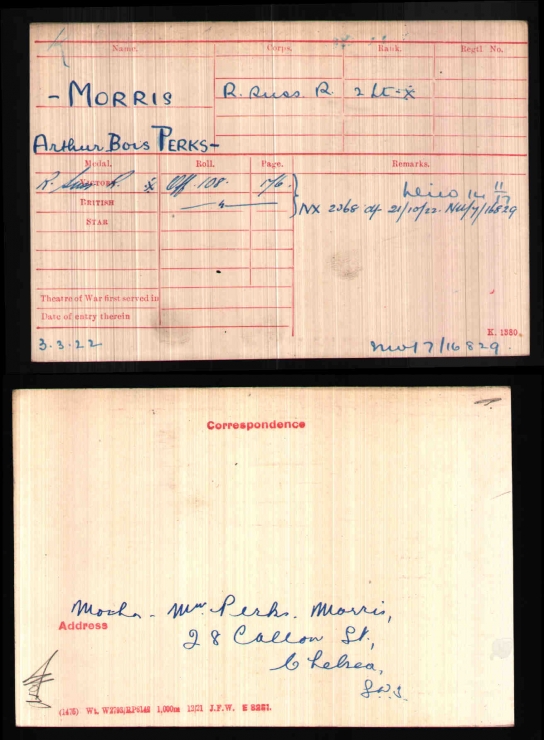 Name. Corps. Rank. Regtl. No.
- MORRIS
R. Suss. R. 2 Lt - x
Arthur Bois PERKS -
Medal. Roll. Page. Remarks.
VICTORY R. Suss R. x Off. 108. 176.
Died 14 11/17
BRITISH
NX 2368 of 21/10/22. NW/7/16829
STAR
Theatre of War first served in
Date of entry therein
K. 1380.
3.3.22
NW/7/16829.
Correspondence
Mother - Mrs Perks. Morris,
Address
28 Callow St,
Chelsea,
S.W.3.
(1435) Wt. W2795/RP6142 1,000m 12/21 J.F.W. E 8221.